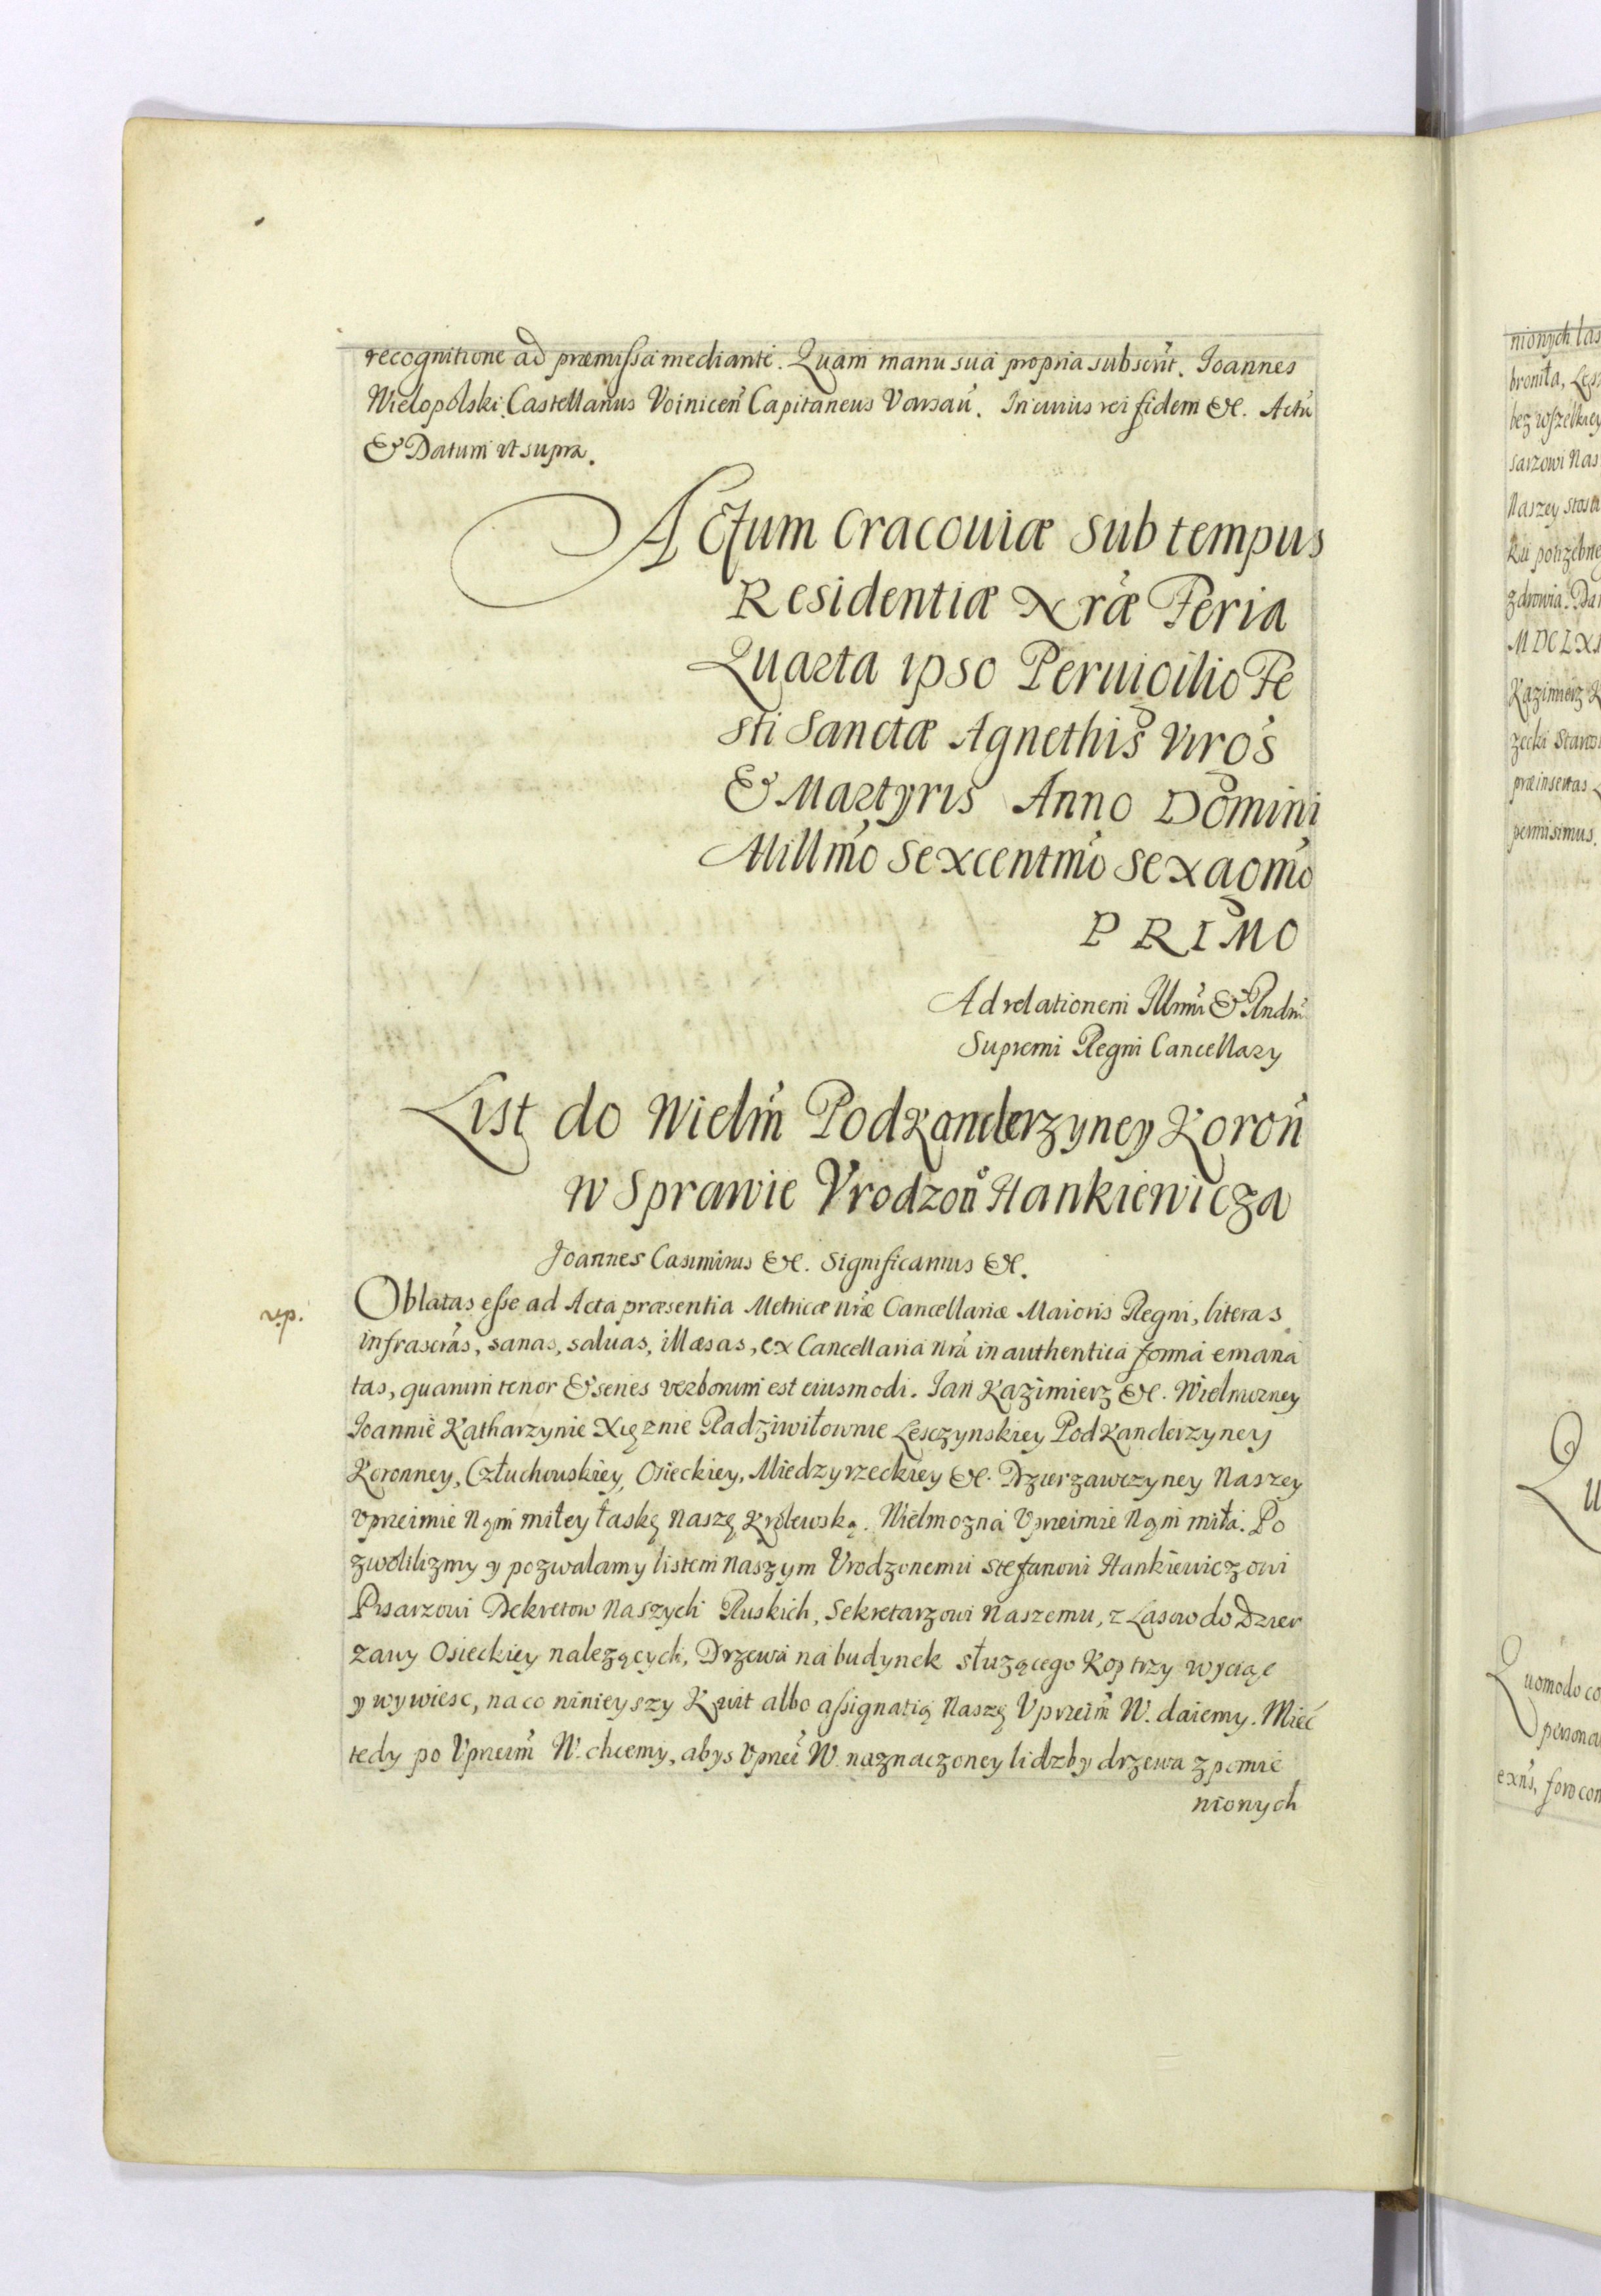 recognitione ad præmissa mediante. Quam manu sua propria subscrit. Joannes
Wielopolski Castellanus Voinicen̄ Capitaneus Varsau̇. In cuius rei fidem &c. Actu̇
& Datum ut supra.
Actum Cracouiæ sub tempus
Residentiæ Nræ Feria
Quarta ipso Peruigilio Fe
sti Sanctæ Agnethis Virgs
& Martyris Anno Domini
Millmo Sexcentmo Sexagmo
PRIMO
Ad relationem Illmi & Rndmi
Supremi Regni Cancellary
List do Wielm Podkanclerzyney Koron
w Sprawie Vrodzon Hankiewicza
Joannes Casimirus &c. Significamus &c.
rep.
Oblatas esse ad Acta præsentia Metricæ nræ Cancellariæ Maioris Regni, literas
infrascras, sanas, saluas, illæsas, ex Cancellaria nra in authentica forma emana
tas, quarum tenor & series verborum est eiusmodi. Jan Kazimierz &c. Wielmozney
Joannie Katharzynie Xiężnie Radziwiłownie Lesczynskiey Podkanclerzyney
Koronney, Człuchouskiey, Osieckiey, Miedzyrzeckiey &c. Dzierzawczyney Naszey
Vprzeimie Nąm miłey łaskę Naszę Krolewską. Wielmozna Vprzeimie Nąm miła. Po
zwolilizmy y pozwalamy listem Naszym Vrodzonemu Stefanowi Hankiewiczowi
Pisarzowi Dekretow Naszych Ruskich, Sekretarzowi Naszemu, z Lasow do Dzier
zawy Osieckiey nalezących, Drzewa na budynek słuzącego Kop trzy wyciąc
y wywiesc, na co ninieyszy Kwit albo assignatią Naszę Vprzeim W. daiemy. Miec
tedy po Vprzeim W. chcemy, abys Vprzei W. naznaczoney lidzby drzewa z pomie
nionych
nionych las
broniła,
bez wszelkiey
sarzowi Nas
Naszey
ku potrzebne
zdrowia. Dan
MDCLX
Kazimierz K
præinsertas
permisimus.
Qu
Quomodo co
persona
exns, foro con